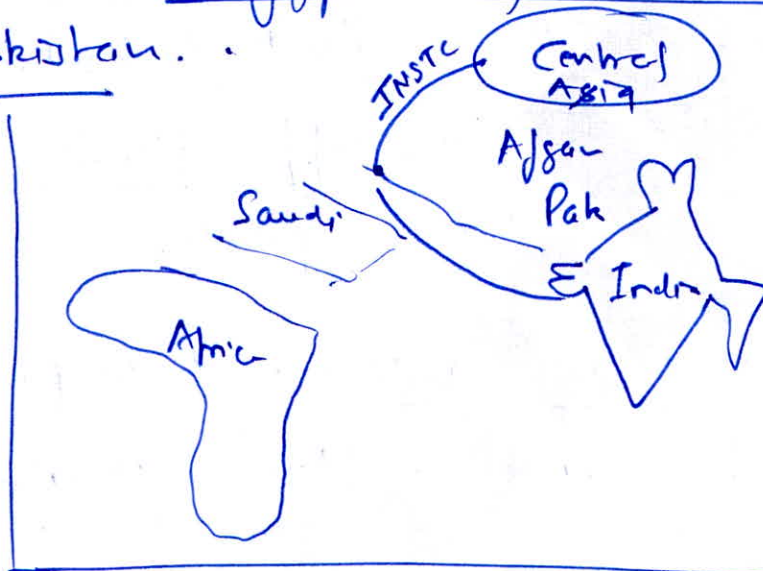 kistan..
INSTC
Central
Asia
Afgan
Saudi
Pak
India
Africa